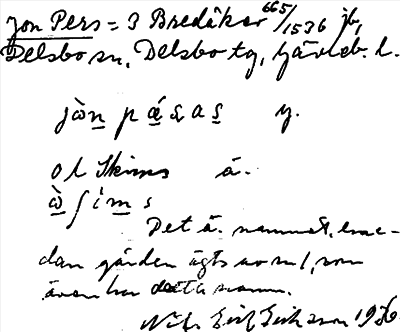 Jon Pers = 3 Bredåker 665/1536 jb,
Delsbo sn, Delsbo tg, Gävleb. l.
jòn pǽsas y.
ol Skims ä.
ò ʃims
Det ä. namnet, eme-
dan gården ägts av ml, som
även har detta namn.
Nils Erik Eriksson 1936